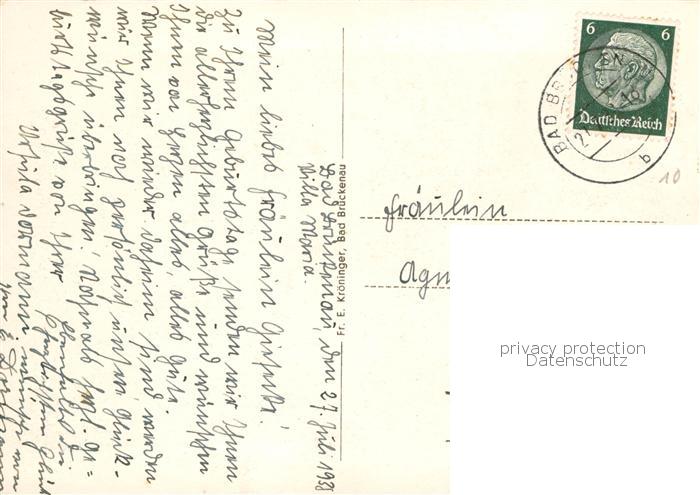 Bad Brückenau, den 27. Juli 1938
Villa Maria.
Mein liebes Fräulein
zu Ihrem Geburtstage senden wir Ihnen
die allerherzlichsten Grüße und wünschen
Ihnen von Herzen alles, alles Gute.
Wenn wir wieder daheim sind werden
wir Ihnen noch persönlich unsere Glück-
wünsche überbringen. Nochmals herzl. Ge-
burtstagsgrüße von Ihrer
Ursula
Fr. E. Kröninger, Bad Brückenau
6 6
Deutsches Reich
BAD BR
b
Fräulein
Agn
10
privacy protection
Datenschutz